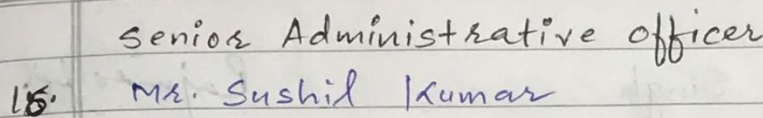 Senior Administrative officer
15. Mr. Sushil Kumar